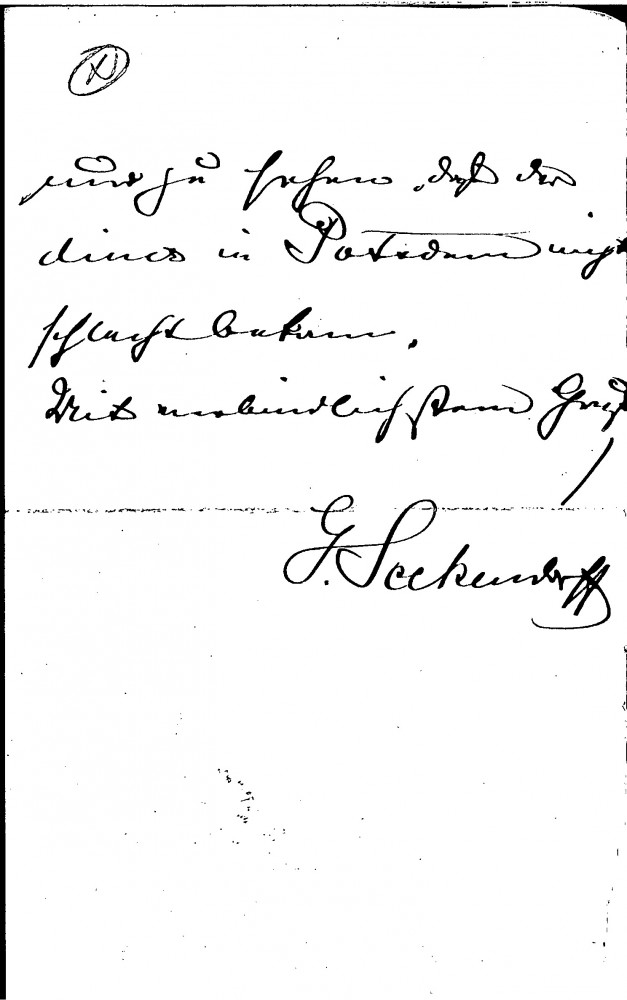 nur zu sehen, daß der
diner in Potsdam nicht
schlecht bekam.
Mit verbindlichstem Gruß
G. Seckendorff